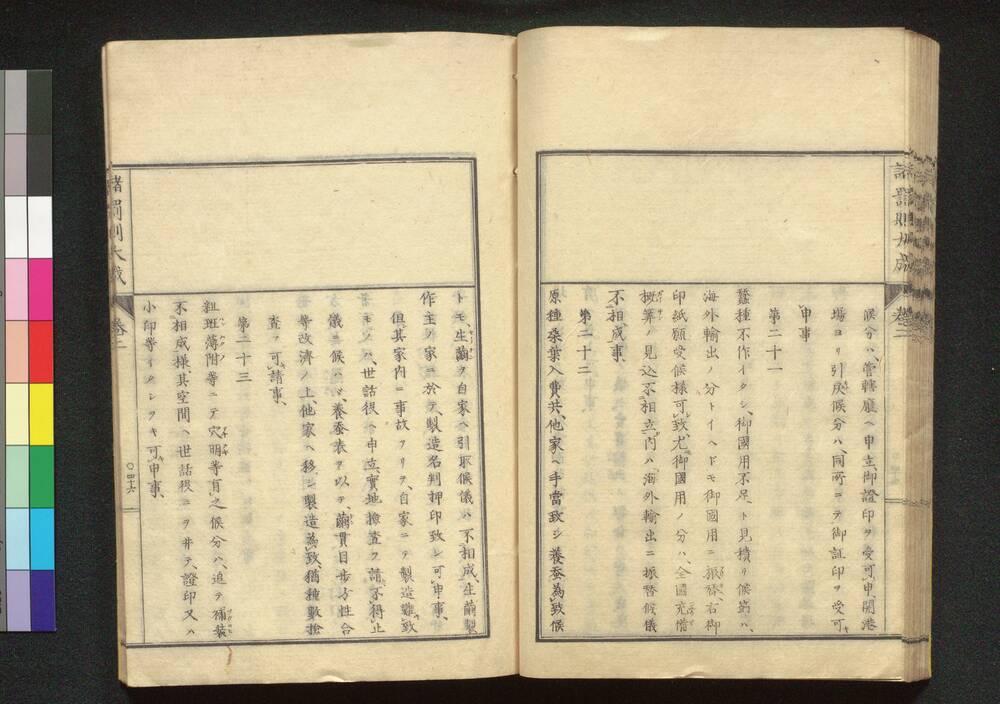 候分ハ、管轄廳ヘ申立、御證印ヲ受可申、開港
場ヨリ引戻候分ハ、同所ニテ御証印ヲ受可
申事
第二十一
蠶種不作イタシ、御國用不足ト見積リ候節ハ、
海外輸出ノ分トイヘドモ御國用ニ振替、右御
印紙願受候様可致、尤御國用ノ分ハ、全國充備
概算ノ見込不相立内ハ、海外輸出ニ振替候儀
不相成事、
第二十二
原種桑葉入費共、他家ヘ手當致シ養蚕為致候
トモ、生繭ヲ自家ヘ引取候儀ハ不相成、生繭製
作主ノ家ニ於テ製造名判押印致シ可申事、
但其家内ニ事故アリテ、自家ニテ製造難致
モノハ、世話役ヘ申立、實地撿査ヲ請、不得止
儀ニ候ハヽ、養蚕表ヲ以テ、繭貫目歩方性合
等改濟ノ上、他家ヘ移シ製造為致、猶種數撿
査ヲ可請事、
第二十三
粗班薄附等ニテ穴明等有之候分ハ、追テ補装
不相成様其空間ヘ世話役ニヲ井テ、證印又ハ
小印等イタシヲキ可申事、
諸罰則大成 巻二
〇四十六